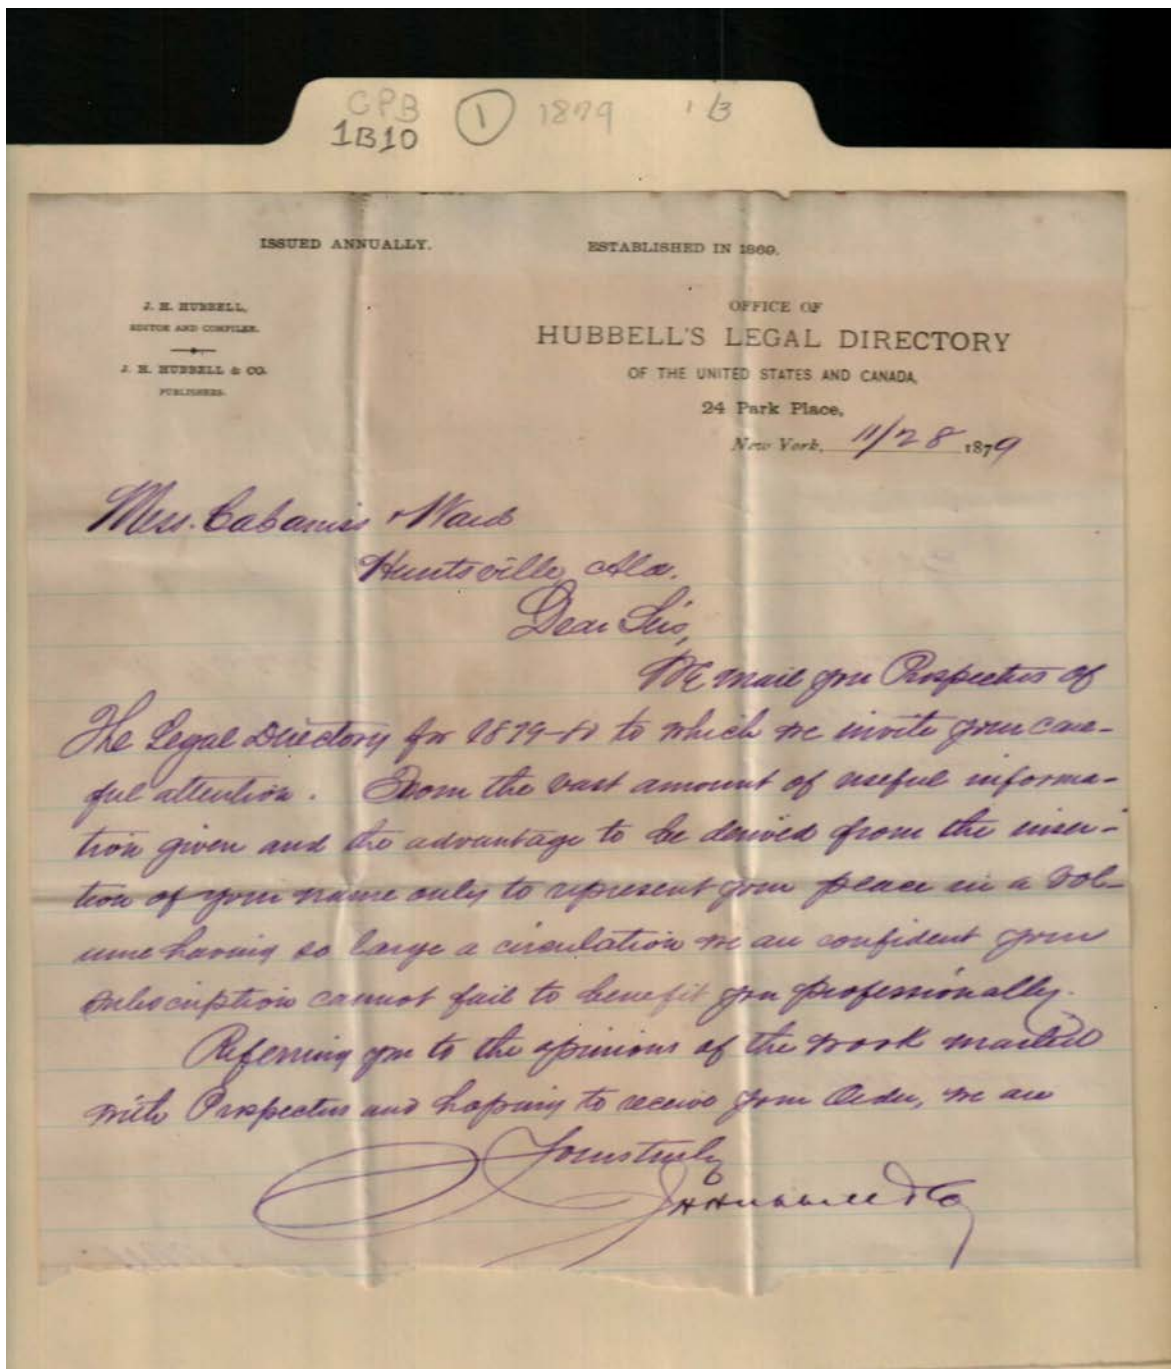 CPB ① 1879 1/3
1B10
ISSUED ANNUALLY. ESTABLISHED IN 1869.
J. H. HUBBELL,
EDITOR AND COMPILER.
J. H. HUBBELL & CO.
PUBLISHERS.
OFFICE OF
HUBBELL'S LEGAL DIRECTORY
OF THE UNITED STATES AND CANADA,
24 Park Place,
New York, 11/28 1879
Mess. Cabaniss & Ward
Huntsville, Ala.
Dear Sirs,
We mail you Prospectus of
The Legal Directory for 1879-80 to which we invite your care-
ful attention. From the vast amount of useful informa-
tion given and the advantage to be derived from the inser-
tion of your name only to represent your place in a Vol-
ume having so large a circulation we are confident your
subscription cannot fail to benefit you professionally.
Referring you to the opinions of the work mailed
with Prospectus and hoping to receive your Order, we are
Yours truly
J H Hubbell & Co